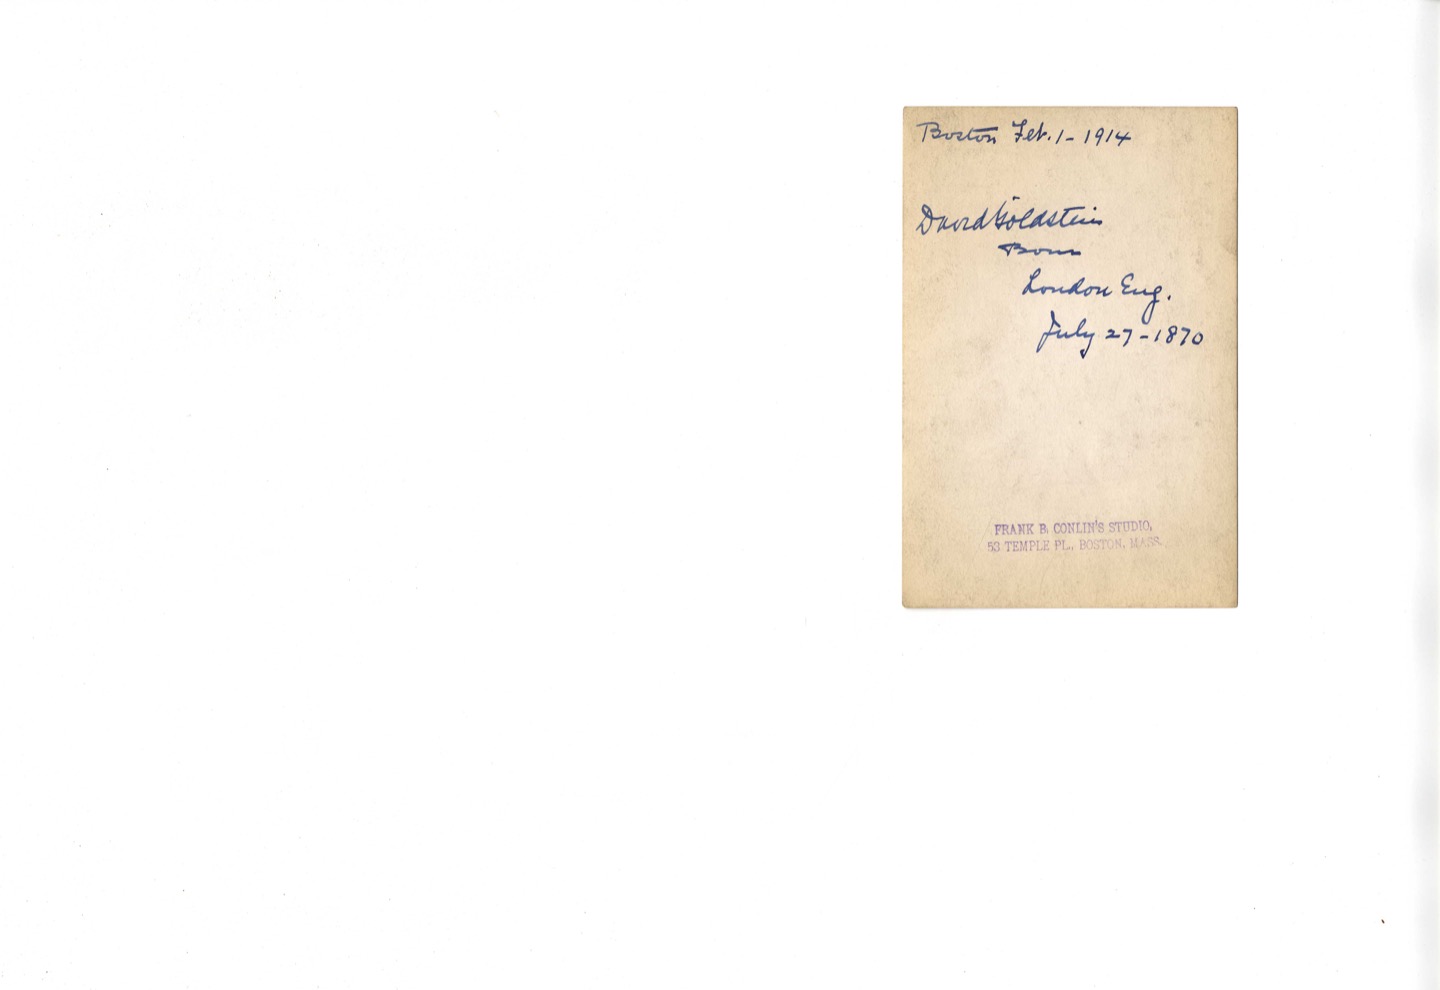 Boston Feb. 1 - 1914
David Goldstein
Born
London Eng.
July 27 - 1870
FRANK B. CONLIN'S STUDIO,
53 TEMPLE PL., BOSTON, MASS.